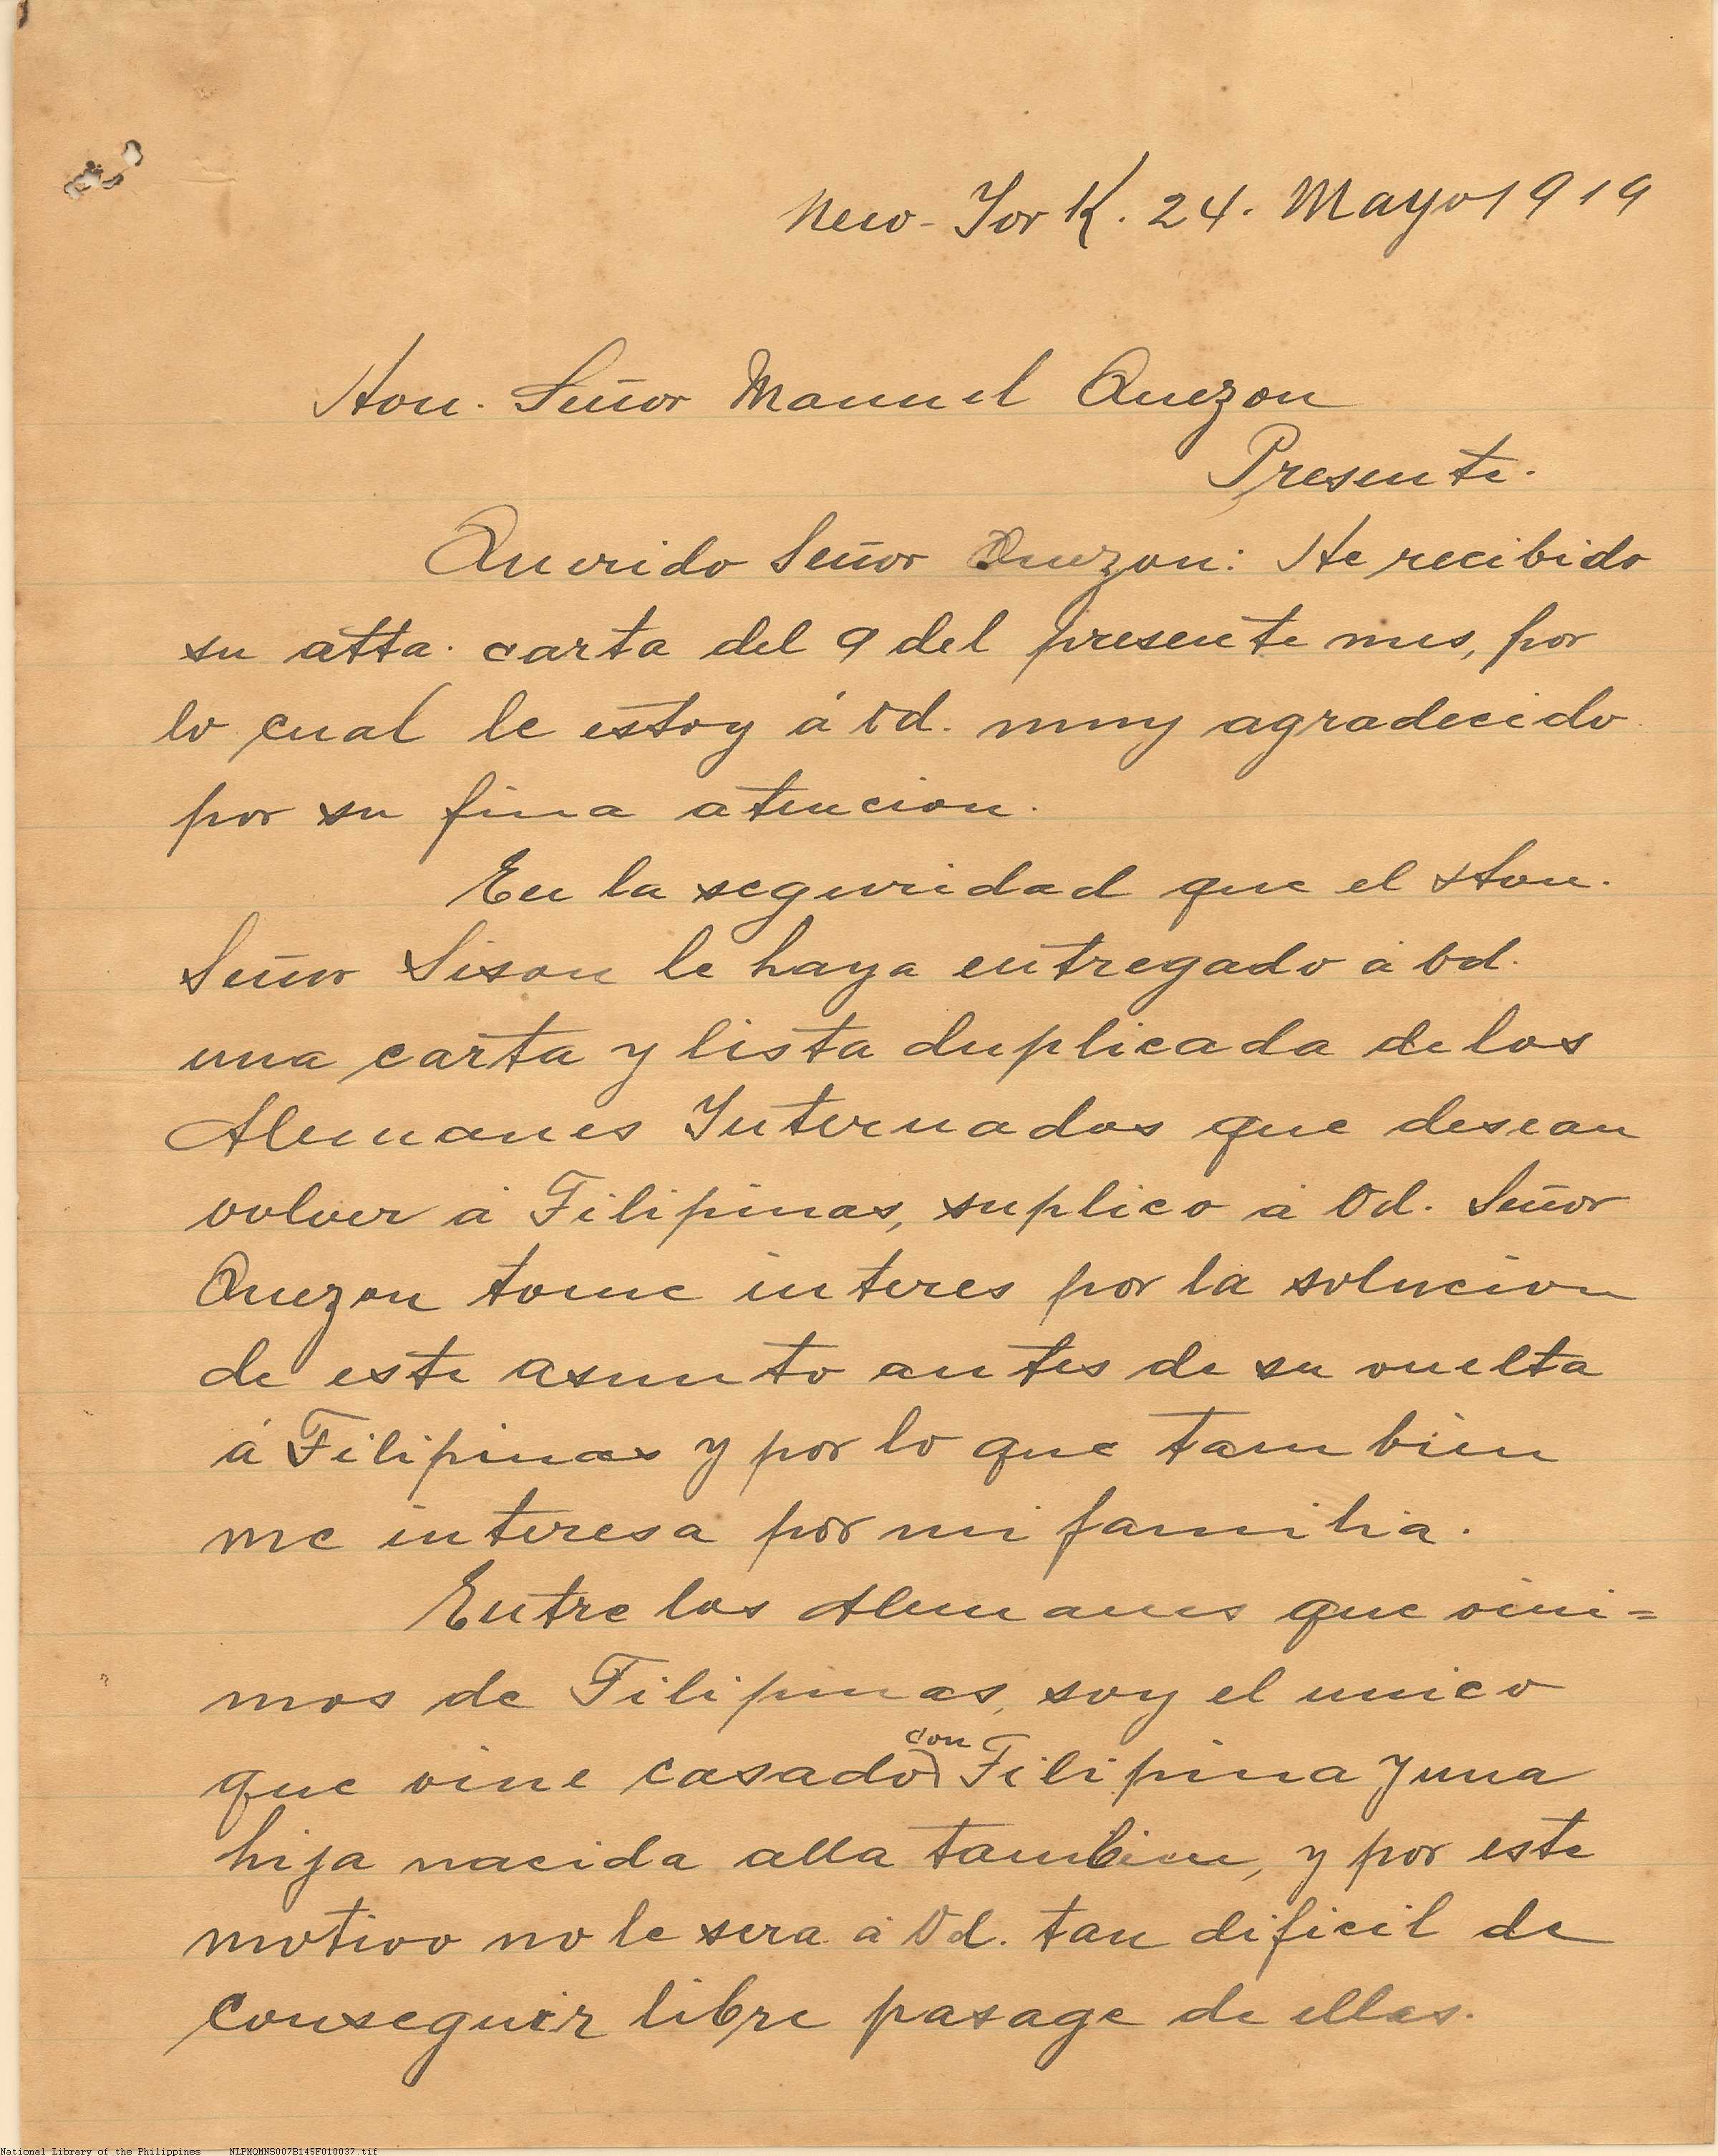 New-York. 24. Mayo 1919
Hon. Señor Manuel Quezon
Presente.
Querido Señor Quezon: He recibido
su atta. carta del 9 del presente mes, por
lo cual le estoy á Vd. muy agradecido
por su fina atencion.
En la seguridad que el Hon.
Señor Sison le haya entregado á Vd.
una carta y lista duplicada de los
Alemanes Internados que desean
volver á Filipinas, suplico á Vd. Señor
Quezon tome interes por la solucion
de este asunto antes de su vuelta
á Filipinas y por lo que tambien
me interesa por mi familia.
Entre los Alemanes que vini=
mos de Filipinas, soy el unico
que vine casado con Filipina y una
hija nacida alla tambien, y por este
motivo no le sera á Vd. tan dificil de
conseguir libre pasage de ellas.
National Library of the Philippines NLPMQMNS007B145F010037.tif